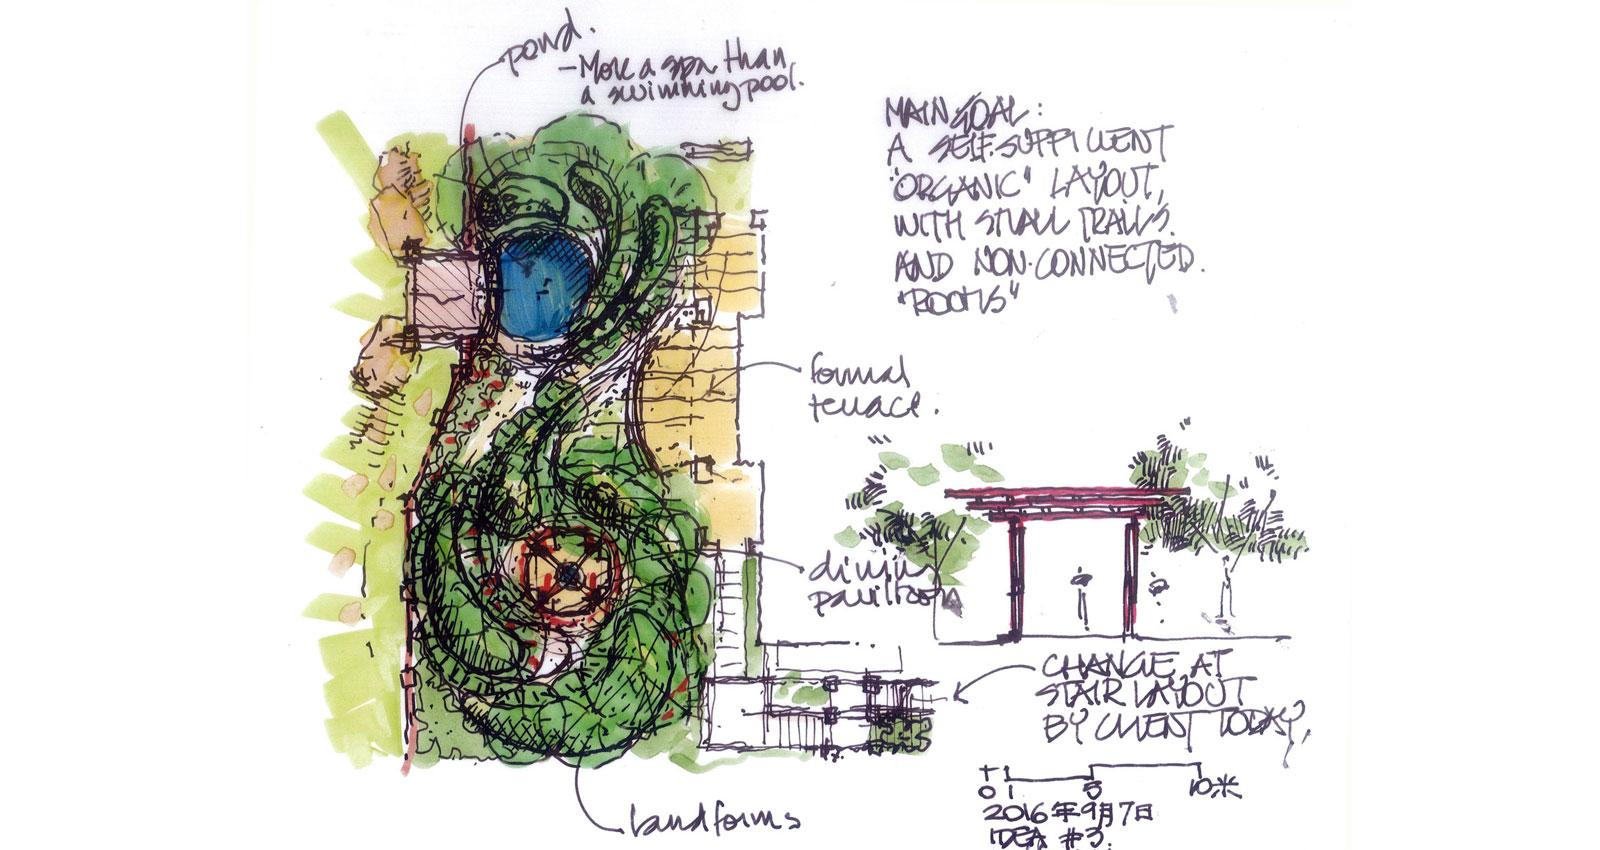 pond.
- More a spa than
a swimming pool.
MAIN GOAL:
A SELF-SUFFICIENT
"ORGANIC" LAYOUT,
WITH SMALL TRAILS.
AND NON-CONNECTED.
"ROOMS"
formal
terrace.
dining
pavilion
CHANGE AT
STAIR LAYOUT
BY CLIENT TODAY,
landforms
0 1 5 10米
2016年9月7日
IDEA #3.